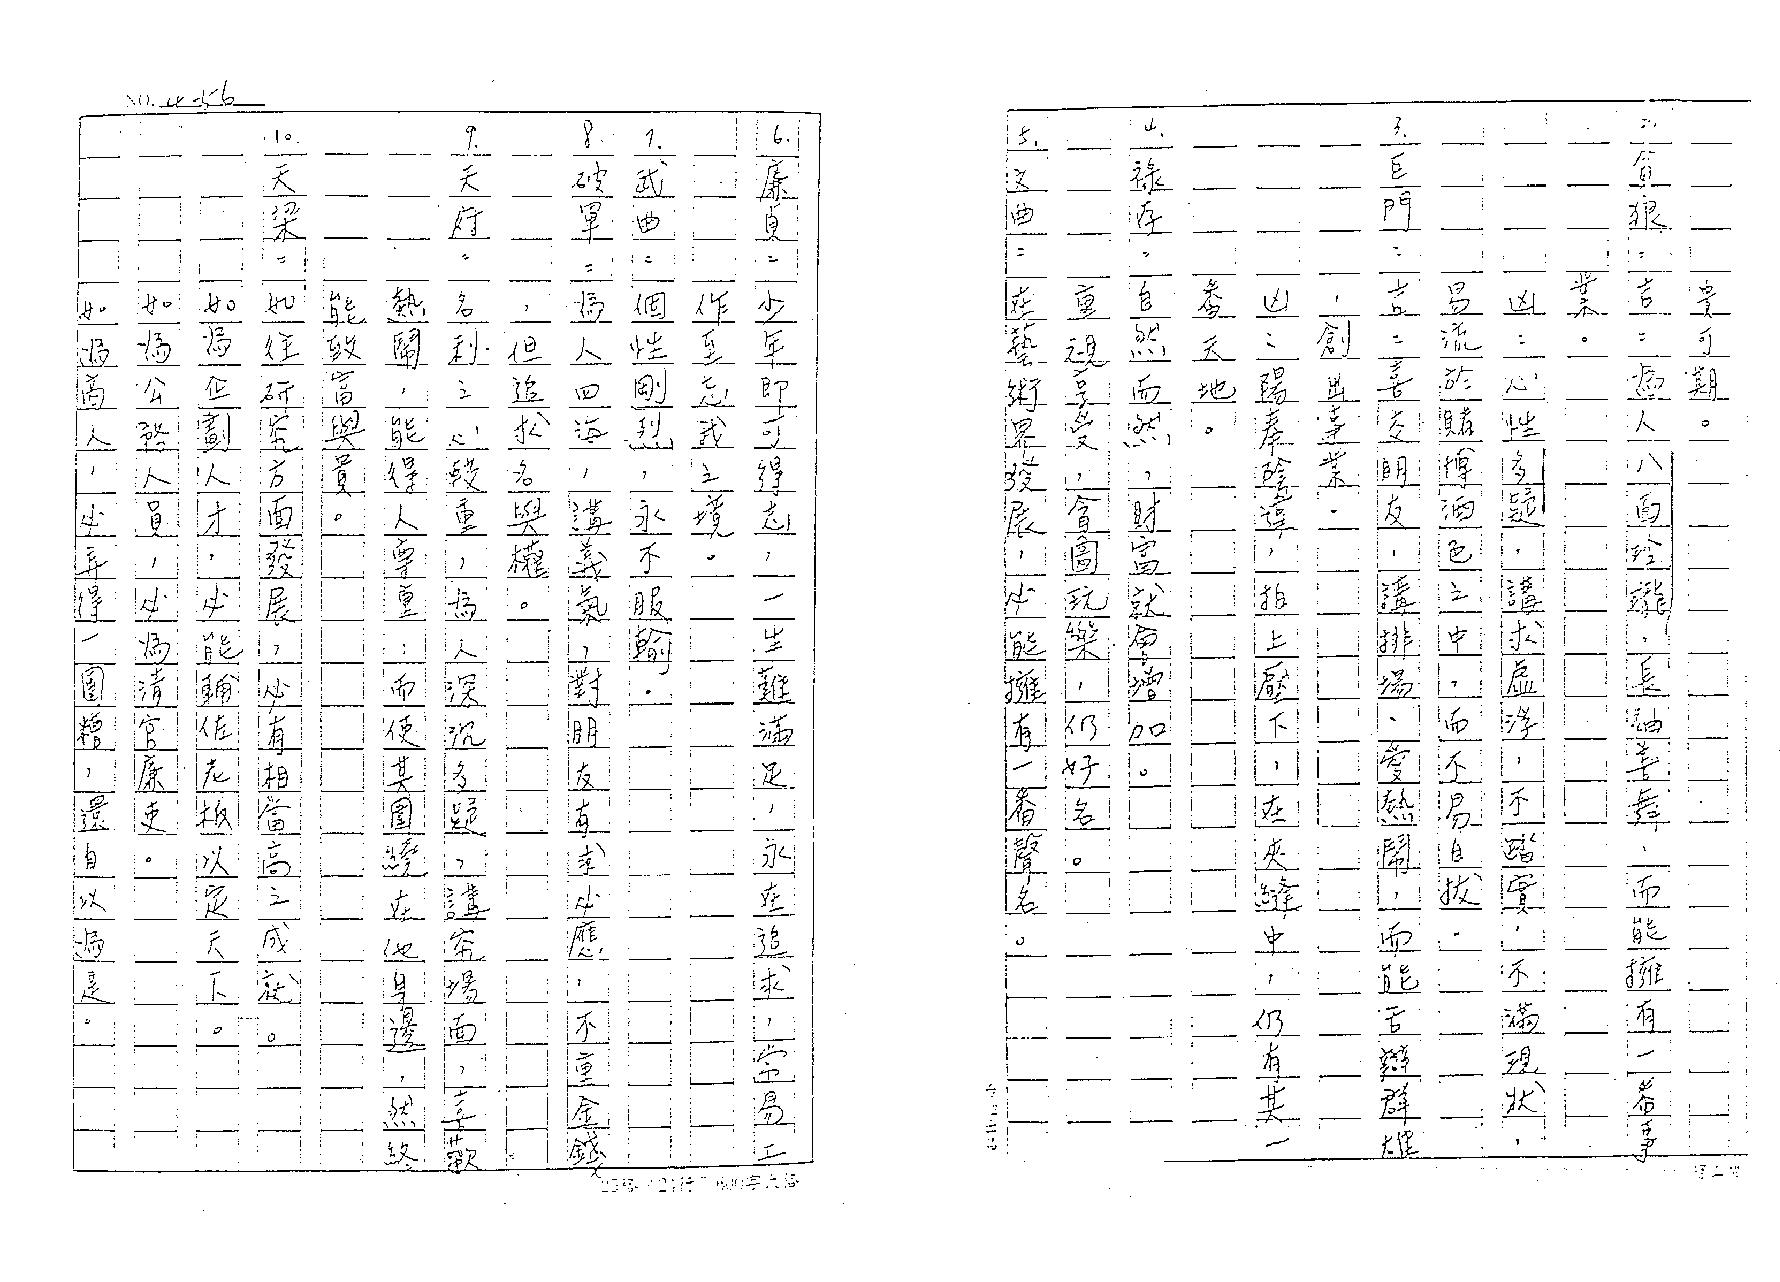 貴可期。
2. 貪狼：吉：為人八面玲瓏，長袖善舞，而能擁有一番事
業。
凶：心性多疑，講求虛浮，不踏實，不滿現狀，
易流於賭博酒色之中，而不易自拔。
3. 巨門：吉：喜交朋友，講排場、愛熱鬧，而能舌辯群雄
，創出事業。
凶：陽奉陰違，拍上壓下，在夾縫中，仍有其一
番天地。
4. 祿存：自然而然，財富就會增加。
重視享受，貪圖玩樂，仍好名。
5. 文曲：在藝術界發展，必能擁有一番聲名。
NO. 4-56
6. 廉貞：少年即可得志，一生難滿足，永在追求，常易工
作至忘我之境。
7. 武曲：個性剛烈，永不服輸。
8. 破軍：為人四海，講義氣，對朋友有求必應，不重金錢
，但追求名與權。
9. 天府：名利之心較重，為人深沉多疑，講究場面，喜歡
熱鬧，能得人尊重；而使其圍繞在他身邊，然終
能致富與貴。
10. 天梁：如往研究方面發展，必有相當高之成就。
如為企劃人才，必能輔佐老板以定天下。
如為公務人員，必為清官廉吏。
如為商人，必弄得一團糟，還自以為是。